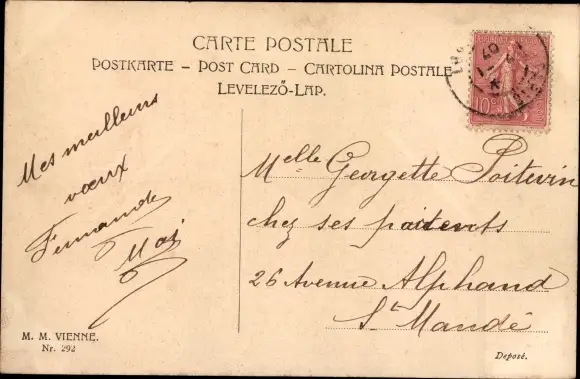 CARTE POSTALE
POSTKARTE – POST CARD – CARTOLINA POSTALE
LEVELEZŐ-LAP.
10c
Mes meilleurs
vœux
Fernande
Melle Georgette Poitevin
chez ses parents
26 Avenue Alphand
St Mandé
M. M. VIENNE.
Nr. 292
Deposé.